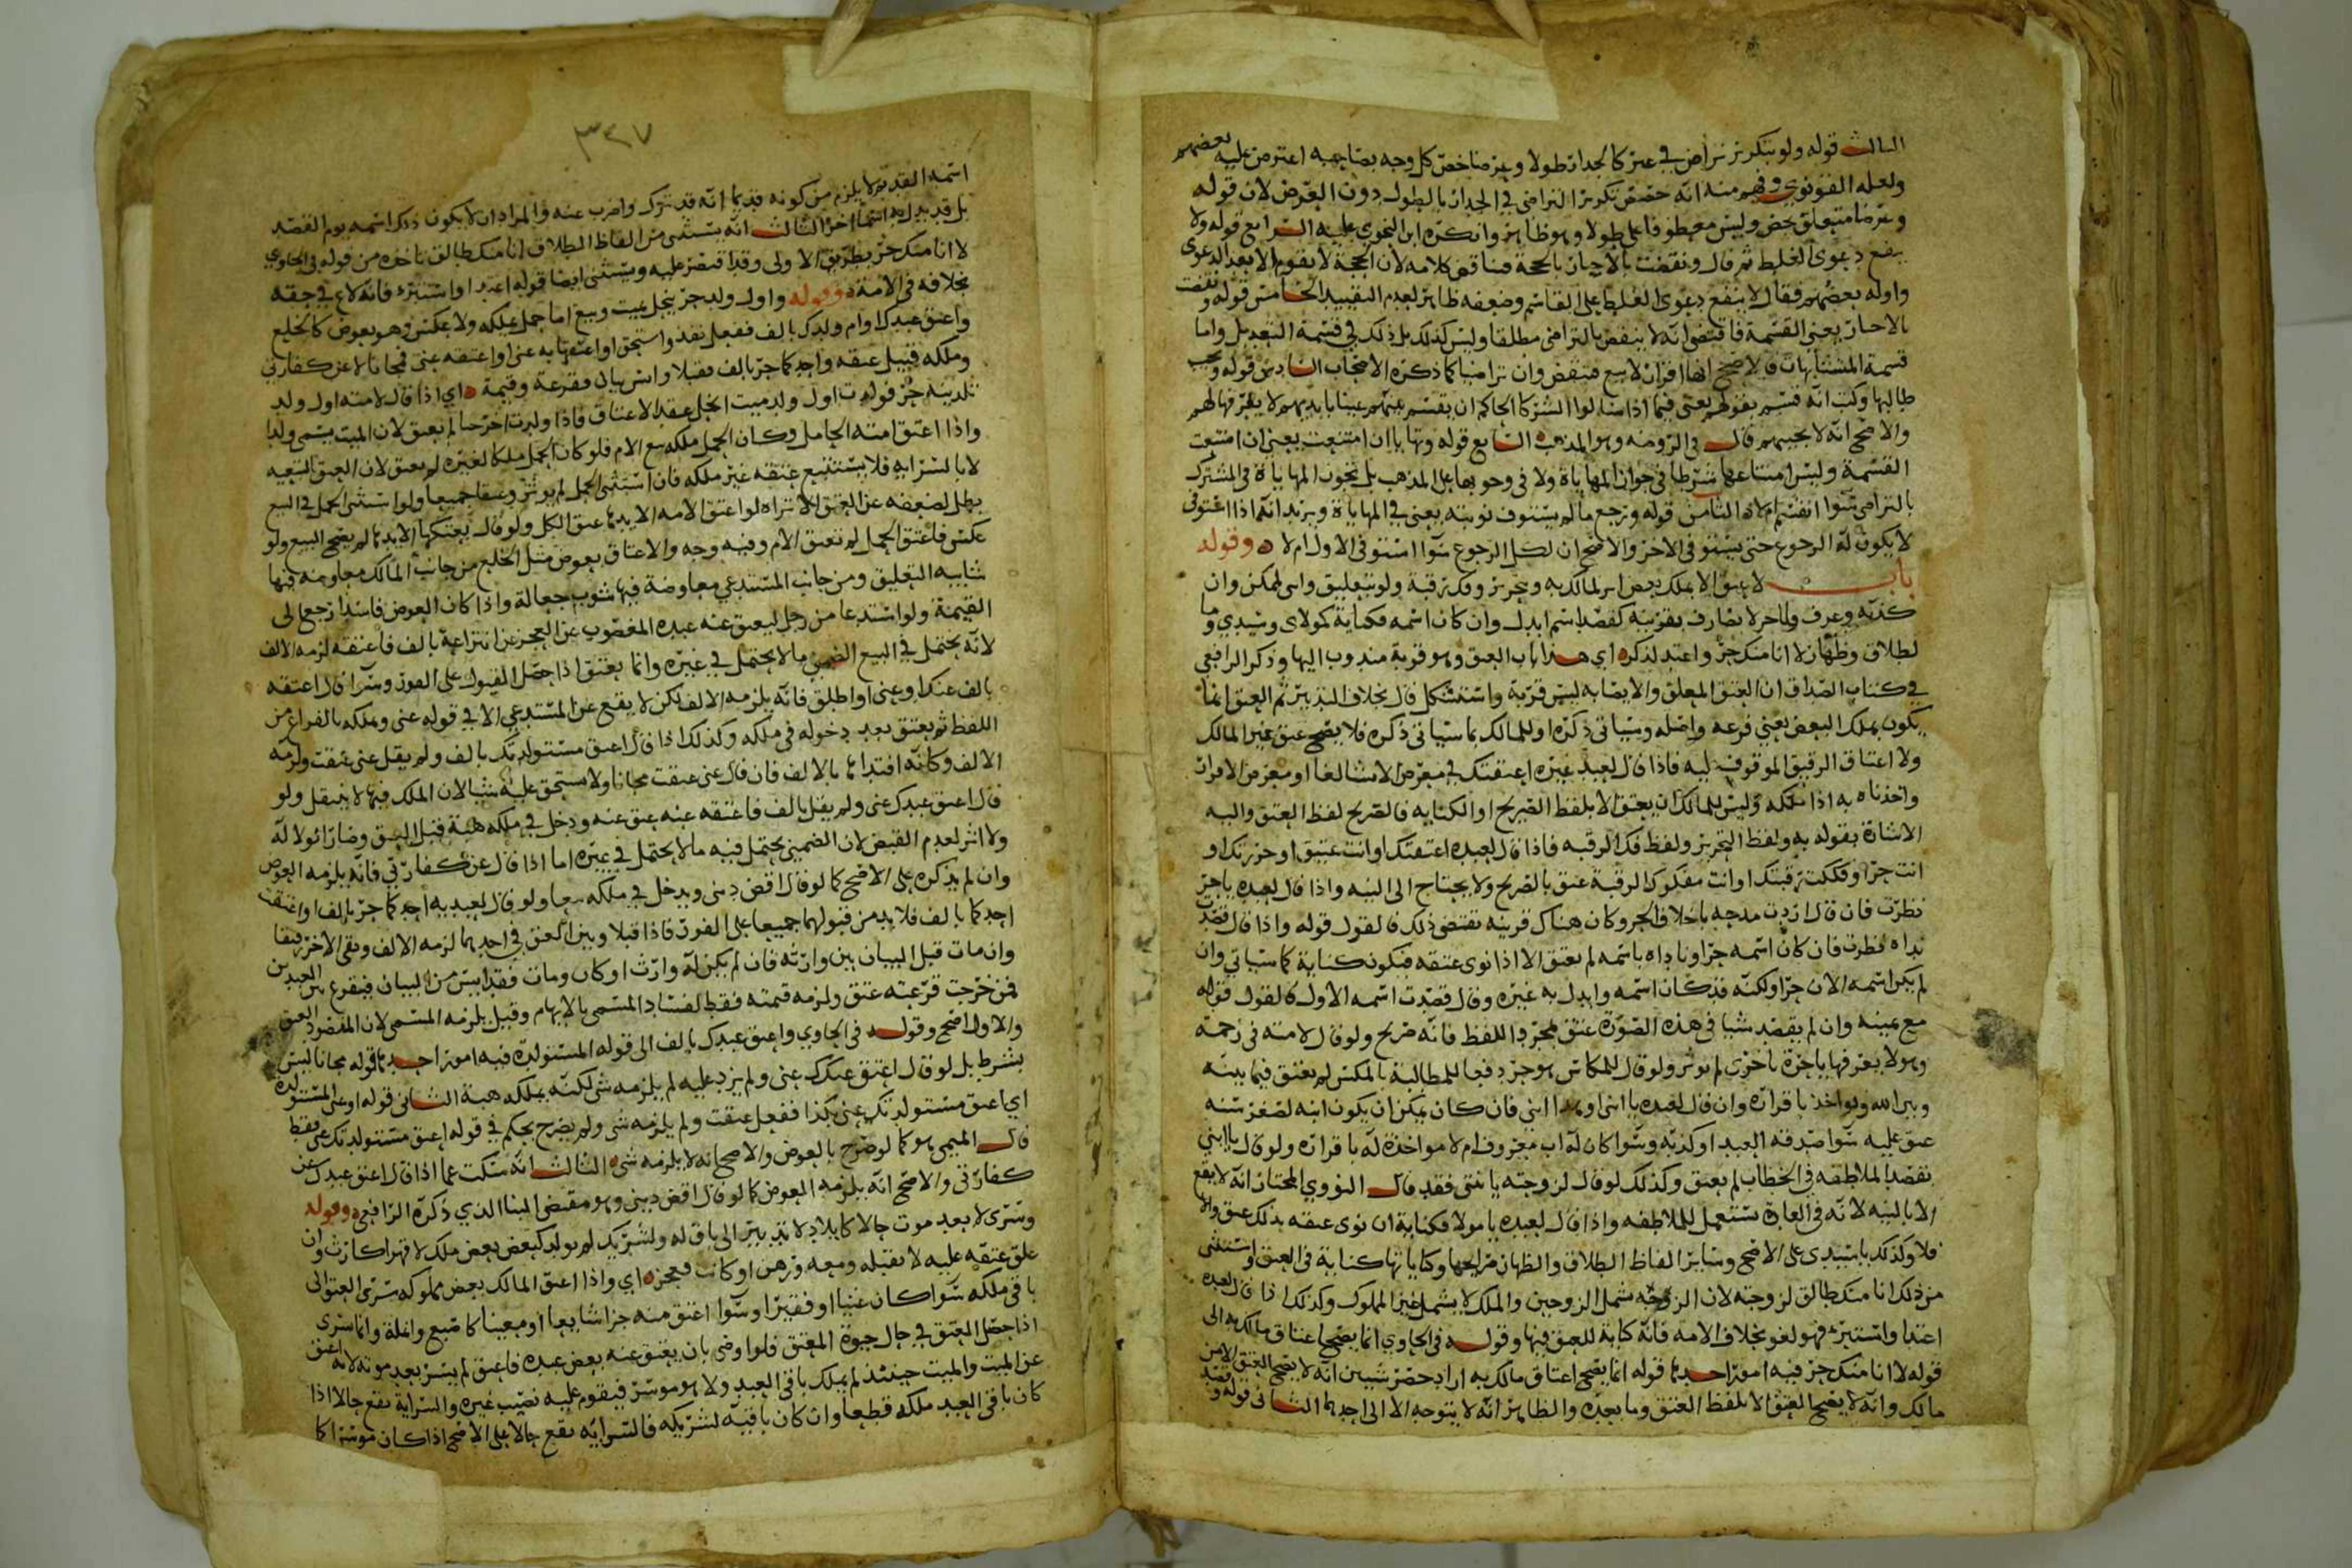 الثالث قوله ولو بتكرير تراض في غير كالجدار طولا وعرضا خص كل وجه بصاحبه اعترض عليه بعضهم
ولعله القونوي وفهم منه انه خصص تكرير التراضي في الجدار بالطول دون العرض لان قوله
وعرضا متعلق بخص وليس معطوفا على طولا وهو ظاهر وانكره ابن النحوي عليه الرابع قوله ولا
ينفع دعوى الغلط ثم قال ونقضت بالاجبار بالحجة فناقض كلامه لان الحجة لا تقوم الا بعد الدعوى
واوله بعضهم فقال لا ينفع دعوى الغلط على القاسم وضعفه ظاهر لعدم التقييد الخامس قوله ونقضت
بالاجبار يعني القسمة فاقتضى انه لا ينقض بالتراضي مطلقا وليس كذلك بل ذلك في قسمة التعديل واما
قسمة المتشابهات فالاصح انها افراز لا بيع فتنقض وان تراضيا كما ذكره الاصحاب السادس قوله ويجيب
طالبها وكتب انه قسم بقولهم يعني فيما اذا سالوا الشركا الحاكم ان يقسم بينهم عينا بايديهم لا يعرفها لهم
والاصح انه لا يجيبهم قال في الروضه وهو المذهب السابع قوله وتهايا ان امتنعت يعني ان امتنعت
القسمة وليس امتناعها شرطا في جواز المهاياة ولا في وجوبها على المذهب بل تجوز المهاياة في المشترك
بالتراضي سوا انقسم ام لا الثامن قوله ورجع ما لم يستوف نوبته يعني في المهاياة ويريد انه اذا استوفى
لا يكون له الرجوع حتى يستوفي الاخر والاصح ان لكل الرجوع سوا استوفى الاول ام لا وقوله
باب لا عتق الا بملك بعض او لمالك به وبتحرير وفك رقبة ولو بتعليق وابني لممكن وان
كذبه وعرف ويا حر لا بصارف بقرينة كقصد اسم ابدل وان كان اسمه فكناية كمولاي وسيدي وما
لطلاق وظهار لا انا منك حر واعتد لذكره اي هذا باب العتق وهو قربة مندوب اليها وذكر الرافعي
في كتاب الصداق ان العتق المعلق والايصا به ليس قربة واستشكل قال بخلاف التدبير ثم العتق انما
يكون بملك البعض يعني فرعه واصله وسياتي ذكره او للمالك بما سياتي ذكره فلا يصح عتق غير المالك
ولا اعتاق الرقيق الموقوف عليه فاذا قال لعبد غيره اعتقتك في معرض الانشا لغا او معرض الاقرار
واخذناه به اذا ملكه وليس للمالك ان يعتق الا بلفظ الصريح او الكناية فالصريح لفظ العتق واليه
الاشارة بقوله به ولفظ التحرير ولفظ فك الرقبه فاذا قال لعبده اعتقتك او انت عتيق او حررتك او
انت حر او فككت رقبتك او انت مفكوك الرقبة عتق بالصريح ولا يحتاج الى النيه واذا قال لعبده يا حر
نظرت فان قال اردت مدحه باخلاق الحر وكان هناك قرينه تقتضي ذلك فالقول قوله واذا قال قصدت
نداه نظرت فان كان اسمه حرا وناداه باسمه لم يعتق الا اذا نوى عتقه فتكون كناية كما سياتي وان
لم يكن اسمه الان حرا ولكنه قد كان اسمه وابدل به غيره وقال قصدت اسمه الاول فالقول قوله
مع يمينه وان لم يقصد شيا في هذه الصورة عتق بمجرد اللفظ فانه صريح ولو قال لامته في زحمة
وهو لا يعرفها يا حرة تاخري لم يوثر ولو قال للمكاس هو حر دفعا للمطالبة بالمكس لم يعتق فيما بينه
وبين الله ويواخذ باقراره وان قال لعبده يا ابني او هذا ابني فان كان يمكن ان يكون ابنه لصغر سنه
عتق عليه سوا صدقه العبد او كذبه وسوا كان له اب معروف ام لا مواخذة له باقراره ولو قال يا ابني
بقصد الملاطفه في الخطاب لم يعتق وكذلك لو قال لزوجته يا بنتي فقد قال النووي المختار انه لا يقع
الا بالنيه لانه في العادة يستعمل للملاطفه واذا قال لعبده يا مولاي فكناية ان نوى عتقه بذلك عتق والا
فلا وكذلك يا سيدي على الاصح وساير الفاظ الطلاق والظهار صرايحها وكناياتها كناية في العتق واستثنى
من ذلك انا منك طالق لزوجته لان الزوجيه تشمل الزوجين والملك لا يشمل غير المملوك وكذلك اذا قال لعبده
اعتد او استبرء فهو لغو بخلاف الامه فانه كناية للعتق فيها وقوله في الحاوي انما يصح اعتاق مالك به الى
قوله لا انا منك حر فيه امور احدها قوله انما يصح اعتاق مالك به اراد حصر شيين انه لا يصح العتق الا من
مالك وانه لا يصح العتق الا بلفظ العتق وما بعده والظاهر انه لا يتوجه الا الى احدهما الثاني قوله وقصد
٣٢٧
اسمه القديم لا يلزم من كونه قديما انه قد ترك واضرب عنه والمراد ان لا يكون ذكر اسمه يوم القصد
بل قد بدل به اسما اخر الثالث انه يستثنى من الفاظ الطلاق انا منك طالق ناخذه من قوله في الحاوي
لا انا منك حر بطريق الاولى وقد اقتصر عليه ويستثنى ايضا قوله اعتد او استبرء فانه لاغ في حقه
بخلافه في الامة وقوله واول ولد حر ينحل بميت وبيع اما حمل بملكه ولا عكس وهو بعوض كالخلع
واعتق عبدك او ام ولدك بالف ففعل نفذ واستحق او اعتقها به عني او اعتقه عني مجانا لا عن كفارتي
وملكه قبيل عتقه واحدكما حر بالف فقبلا وايس بيان فقرعة وقيمة اي اذا قال لامته اول ولد
تلدينه حر فولدت اول ولد ميت انحل عقد الاعتاق فاذا ولدت اخر حيا لم يعتق لان الميت يسمى ولدا
واذا اعتق امته الحامل وكان الحمل ملكه مع الام فلو كان الحمل ملكا لغيره لم يعتق لان العتق بالتبعيه
لا بالسرايه فلا يستتبع عتقه غير ملكه فان استثنى الحمل لم يوثر وعتقا جميعا ولو استثنى الحمل في البيع
بطل لضعفه عن العتق الا تراه لو اعتق الامه الا يدها عتق الكل ولو قال بعتكها الا يدها لم يصح البيع ولو
عكس فاعتق الحمل لم تعتق الام وفيه وجه والاعتاق بعوض مثل الخلع من جانب المالك معاوضه فيها
شايبه التعليق ومن جانب المستدعي معاوضة فيها شوب جعالة واذا كان العوض فاسدا رجع الى
القيمة ولو استدعا من رجل ليعتق عنه عبده المغصوب عن العجز عن انتزاعه بالف فاعتقه لزمه الالف
لانه يحتمل في البيع الضمني ما لا يحتمل في غيره وانما يعتق اذا حصل القبول على الفور وسوا قال اعتقه
بالف عنك او عني او اطلق فانه يلزمه الالف لكن لا يقع عن المستدعي الا في قوله عني وملكه بالفراغ من
اللفظ ثم يعتق بعد دخوله في ملكه وكذلك اذا قال اعتق مستولدتك بالف ولم يقل عني عتقت ولزمه
الالف وكانه افتداها بالالف فان قال عني عتقت مجانا ولا يستحق عليه شيا لان الملك فيها لا ينتقل ولو
قال اعتق عبدك عني ولم يقل بالف فاعتقه عنه عتق عنه ودخل في ملكه هبة قبل العتق وصار الولا له
ولا اثر لعدم القبض لان الضمني يحتمل فيه ما لا يحتمل في غيره اما اذا قال عن كفارتي فانه يلزمه العوض
وان لم يذكره على الاصح كما لو قال اقض ديني ويدخل في ملكه بيعا ولو قال لعبديه احدكما حر بالف او اعتقت
احدكما بالف فلا بد من قبولهما جميعا على الفور فاذا قبلا وبين العتق في احدهما لزمه الالف وبقي الاخر رقيقا
وان مات قبل البيان بين وارثه فان لم يكن له وارث او كان ومات فقد ايس من البيان فيقرع بين العبدين
فمن خرجت قرعته عتق ولزمه قيمته فقط لفساد المسمى بالابهام وقيل يلزمه المسمى لان المقصود العتق
والاول اصح وقوله في الحاوي واعتق عبدك بالف الى قوله المستولدة فيه امور احدها قوله مجانا ليس
بشرط بل لو قال اعتق عبدك عني ولم يزد عليه لم يلزمه شي لكنه يملكه هبة الثاني قوله او عني المستولدة
اي اعتق مستولدتك عني بكذا ففعل عتقت ولم يلزمه شي ولم يصرح بحكم في قوله اعتق مستولدتك عني فقط
قال الميمي هو كما لو صرح بالعوض والاصح انه لا يلزمه شي الثالث انه سكت عما اذا قال اعتق عبدك عن
كفارتي والاصح انه يلزمه العوض كما لو قال اقض ديني وهو مقتضى البنا الذي ذكره الرافعي وقوله
وسرى لا بعد موت حالا كايلاد لا تدبير الى باق له ولشريك لم يولد كبعض بعض ملك لا قهرا كارث وان
علق عتقه عليه لا بقبله ومعه ورهن او كاتب فعجز اي واذا اعتق المالك بعض مملوكه سرى العتق الى
باقي ملكه سوا كان غنيا او فقيرا وسوا اعتق منه جزا شايعا او معينا كاصبع وانملة وانما سرى
اذا حصل العتق في حال حيوة المعتق فلو اوصى بان يعتق عنه بعض عبده فاعتق لم يسر بعد موته لانه اعتق
عن الميت والميت حينئذ لم يملك باقي العبد ولا هو موسر فيقوم عليه نصيب غيره والسراية تقع حالا اذا
كان باقي العبد ملكه قطعا وان كان باقيه لشريكه فالسرايه تقع حالا على الاصح اذا كان موسرا كما